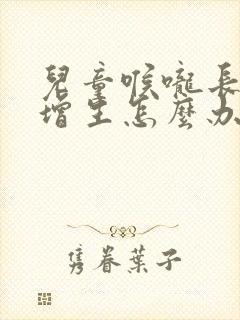 兒童喉嚨長
增生怎麼办
隽眷葉子